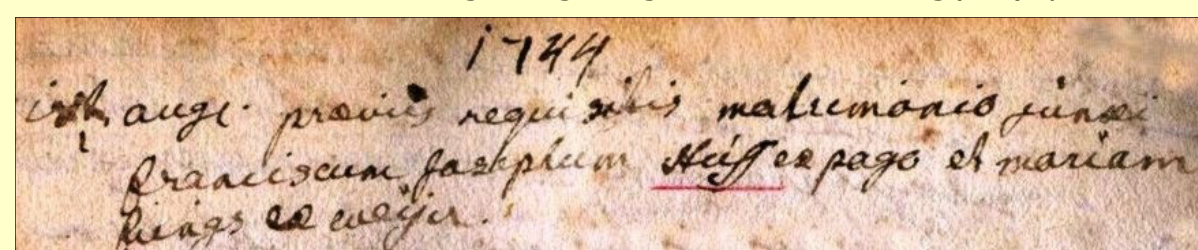 1744
augi praeviis requisitis matrimonio junxi
Franciscum Josephum Hüff ex pago et mariam
ex weijer.